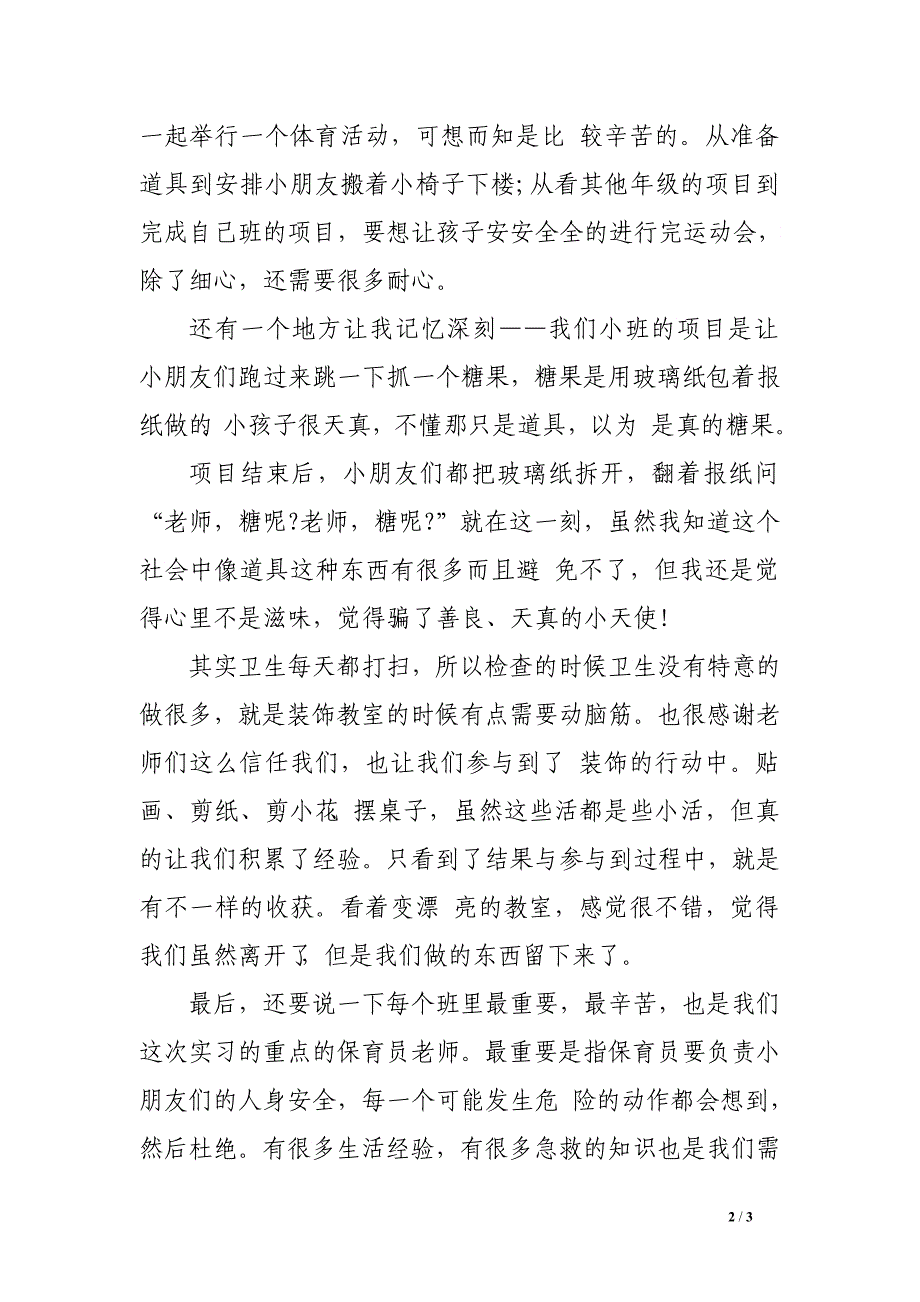 一起举行一个体育活动，可想而知是比 较辛苦的。从准备
道具到安排小朋友搬着小椅子下楼;从看其他年级的项目到
完成自己班的项目，要想让孩子安安全全的进行完运动会，
除了细心，还需要很多耐心。
还有一个地方让我记忆深刻——我们小班的项目是让
小朋友们跑过来跳一下抓一个糖果，糖果是用玻璃纸包着报
纸做的 小孩子很天真，不懂那只是道具，以为 是真的糖果。
项目结束后，小朋友们都把玻璃纸拆开，翻着报纸问
“老师，糖呢?老师，糖呢?”就在这一刻，虽然我知道这个
社会中像道具这种东西有很多而且避 免不了，但我还是觉
得心里不是滋味，觉得骗了善良、天真的小天使!
其实卫生每天都打扫，所以检查的时候卫生没有特意的
做很多，就是装饰教室的时候有点需要动脑筋。也很感谢老
师们这么信任我们，也让我们参与到了 装饰的行动中。贴
画、剪纸、剪小花 摆桌子，虽然这些活都是些小活，但真
的让我们积累了经验。只看到了结果与参与到过程中，就是
有不一样的收获。看着变漂 亮的教室，感觉很不错，觉得
我们虽然离开了，但是我们做的东西留下来了。
最后，还要说一下每个班里最重要，最辛苦，也是我们
这次实习的重点的保育员老师。最重要是指保育员要负责小
朋友们的人身安全，每一个可能发生危 险的动作都会想到，
然后杜绝。有很多生活经验，有很多急救的知识也是我们需
2 / 3